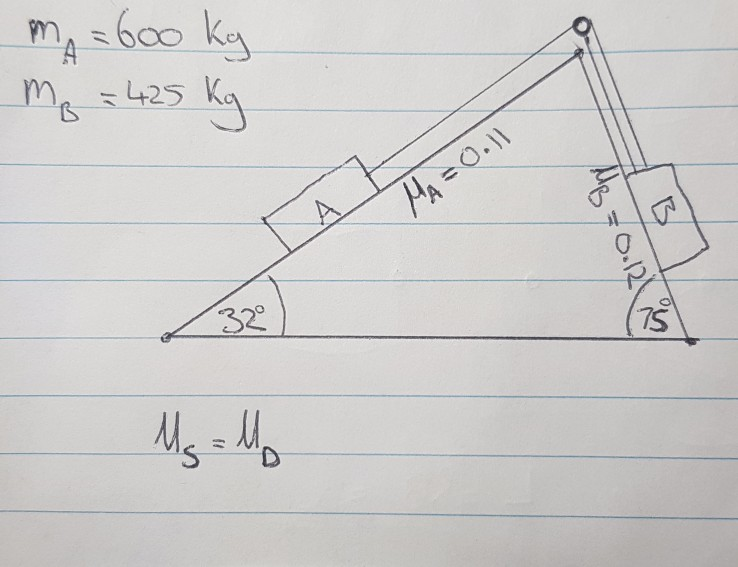 m_A = 600 Kg
m_B = 425 Kg
A
μ_A = 0.11
μ_B = 0.12
B
32°
75°
μ_S = μ_D